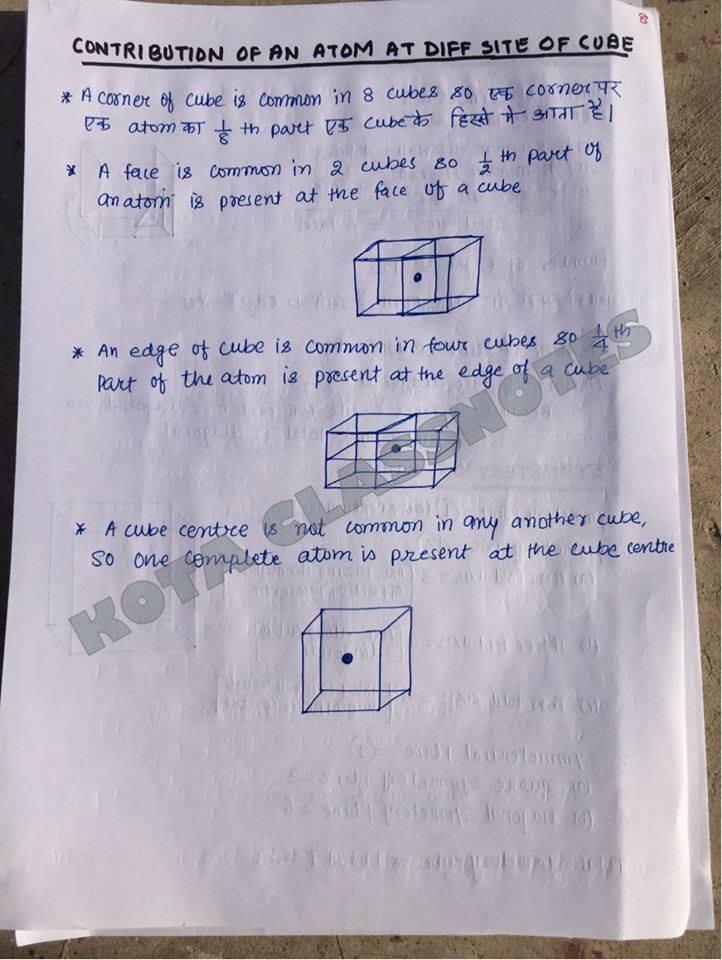 8
CONTRIBUTION OF AN ATOM AT DIFF SITE OF CUBE
* A corner of cube is common in 8 cubes so एक corner पर
एक atom का 1/8 th part एक cube के हिस्से मे आता है।
* A face is common in 2 cubes so 1/2 th part of
an atom is present at the face of a cube
* An edge of cube is common in four cubes so 1/4 th
part of the atom is present at the edge of a cube
* A cube centre is not common in any another cube,
so one complete atom is present at the cube centre
KOTA CLASSNOTES